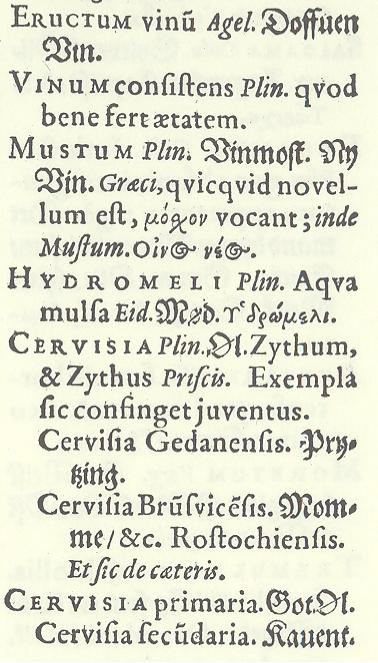 ERUCTUM vinũ Agel. Doffuen
Vin.
VINUM consistens Plin. qvod
bene fert ætatem.
MUSTUM Plin. Vinmost. Ny
Vin. Græci, qvicqvid novel-
lum est, μόχον vocant; inde
Mustum. Οἶν⊙ νέ⊙.
HYDROMELI Plin. Aqva
mulsa Eid. Mød. Ὑδρώμελι.
CERVISIA Plin. Øl. Zythum,
& Zythus Priscis. Exempla
sic confinget juventus.
Cervisia Gedanensis. Pry-
tzing.
Cervisia Brũsvicẽsis. Mom-
me/ &c. Rostochiensis.
Et sic de cæteris.
CERVISIA primaria. Got Øl.
Cervisia secũdaria. Kavent.